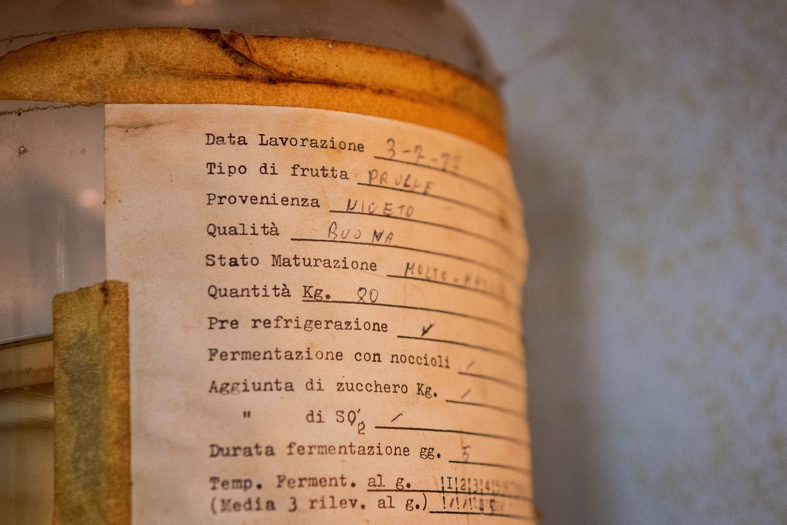 Data Lavorazione 3-7-
Tipo di frutta PRUGNE
Provenienza NICETO
Qualità BUONA
Stato Maturazione MOLTO-
Quantità Kg. 80
Pre refrigerazione ✓
Fermentazione con noccioli /
Aggiunta di zucchero Kg. /
" di SO2 /
Durata fermentazione gg. 5
Temp. Ferment. al g. !1!2!3!4!5
(Media 3 rilev. al g.)